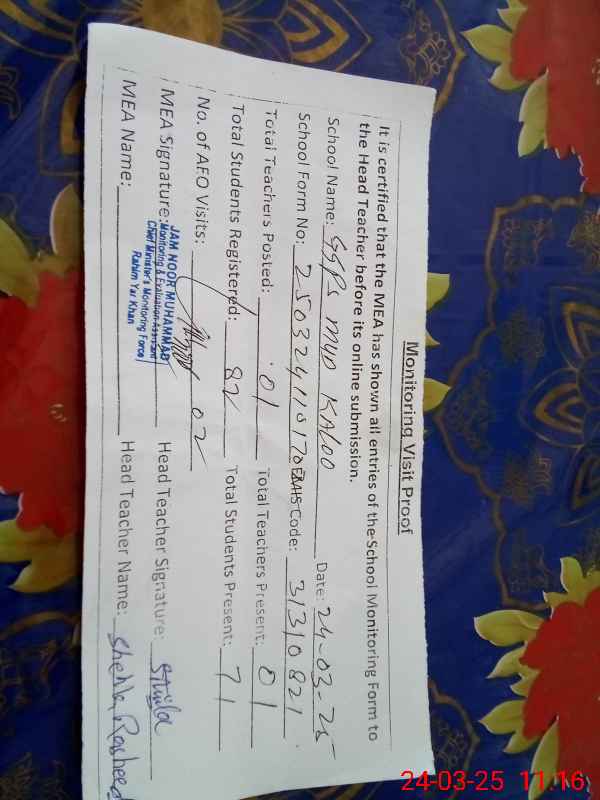 Monitoring Visit Proof
It is certified that the MEA has shown all entries of the School Monitoring Form to
the Head Teacher before its online submission.
School Name: GGPS MUD KALOO Date: 24-03-25
School Form No: 250324110170 EMIS Code: 31310821
Total Teachers Posted: 01 Total Teachers Present: 01
Total Students Registered: 82 Total Students Present: 71
No. of AEO Visits: 02
MEA Signature: Head Teacher Signature:
JAM NOOR MUHAMMAD
Monitoring & Evaluation Assistant
Chief Minister's Monitoring Force
Rahim Yar Khan
MEA Name: Head Teacher Name: Shehla Rasheed
24-03-25 11:16